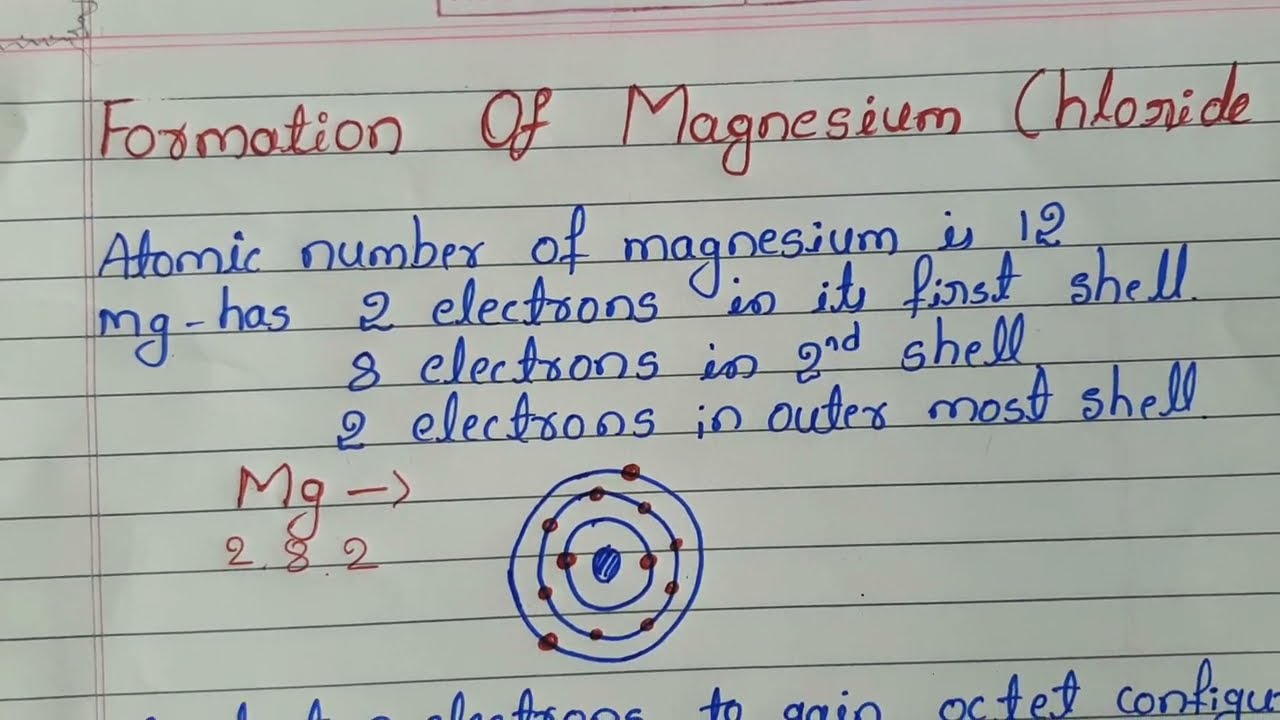 Formation Of Magnesium Chloride
Atomic number of magnesium is 12
Mg-has 2 electrons in its first shell.
8 electrons in 2nd shell
2 electrons in outer most shell.
Mg →
2.8.2
electrons to gain octet configu